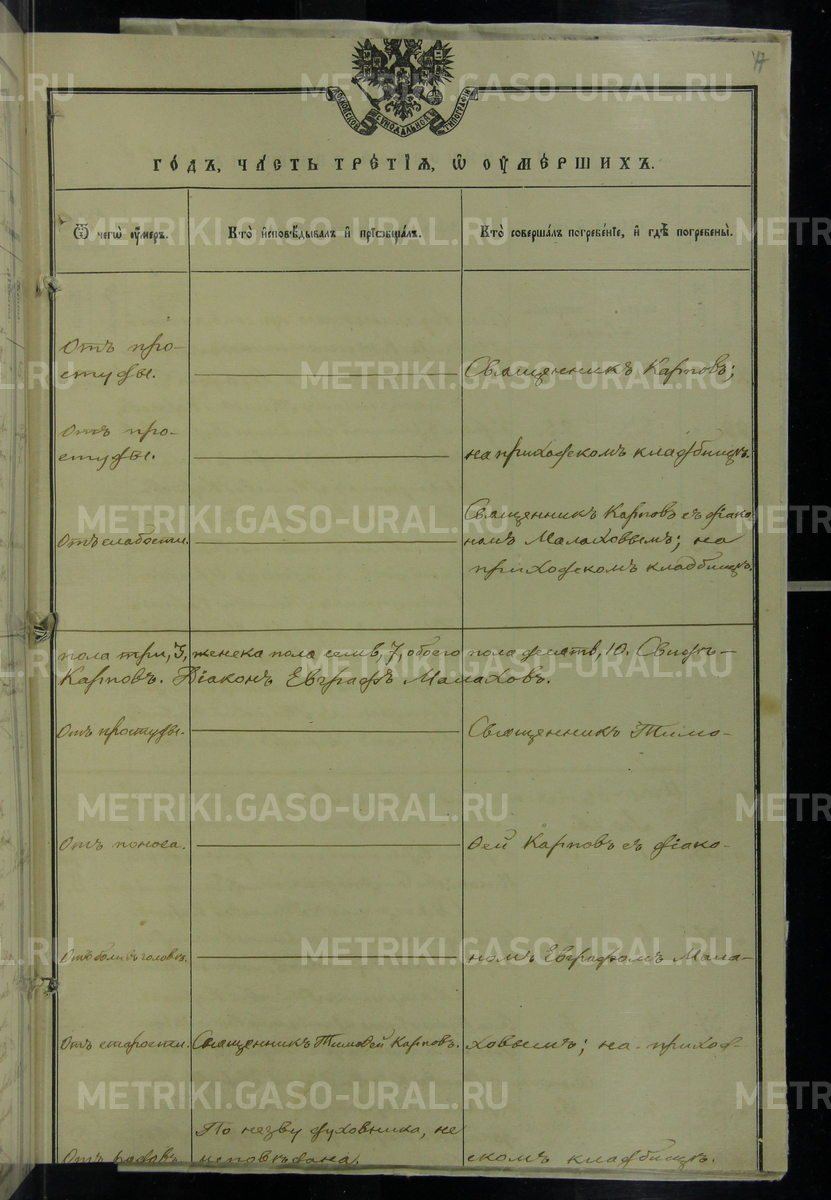 МОСКОВСКОЙ СѴНОДАЛЬНОЙ ТИПОГРАФІИ
го́дъ, ча́сть тре́тїѧ, ѡ᾽ оу҆ме́ршихъ.
Ѿ чегѡ̀ оу҆́меръ.
Кто̀ и҆сповѣ́дывалъ и҆ прїѡбща́лъ.
Кто̀ соверша́лъ погребе́нїе, и҆ гдѣ̀ погребены̀.
Отъ про-
студы.
Священникъ Карповъ;
Отъ про-
студы.
на приходскомъ кладбищѣ.
Отъ слабости.
Священникъ Карповъ съ діако-
номъ Малаховымъ; на
приходскомъ кладбищѣ.
пола три, 3, женска пола семь, 7, обоего пола десять, 10. Свидѣт-
Карповъ. Діаконъ Евграфъ Малаховъ.
Отъ простуды.
Священникъ Тимо-
Отъ поноса.
ѳей Карповъ съ діако-
Отъ боли въ головѣ.
номъ Евграфомъ Мала-
Отъ старости.
Священникъ Тимоѳей Карповъ.
ховымъ; на приход-
Отъ родовъ
По незву духовника, не
исповѣдана.
скомъ кладбищѣ.
METRIKI.GASO-URAL.RU